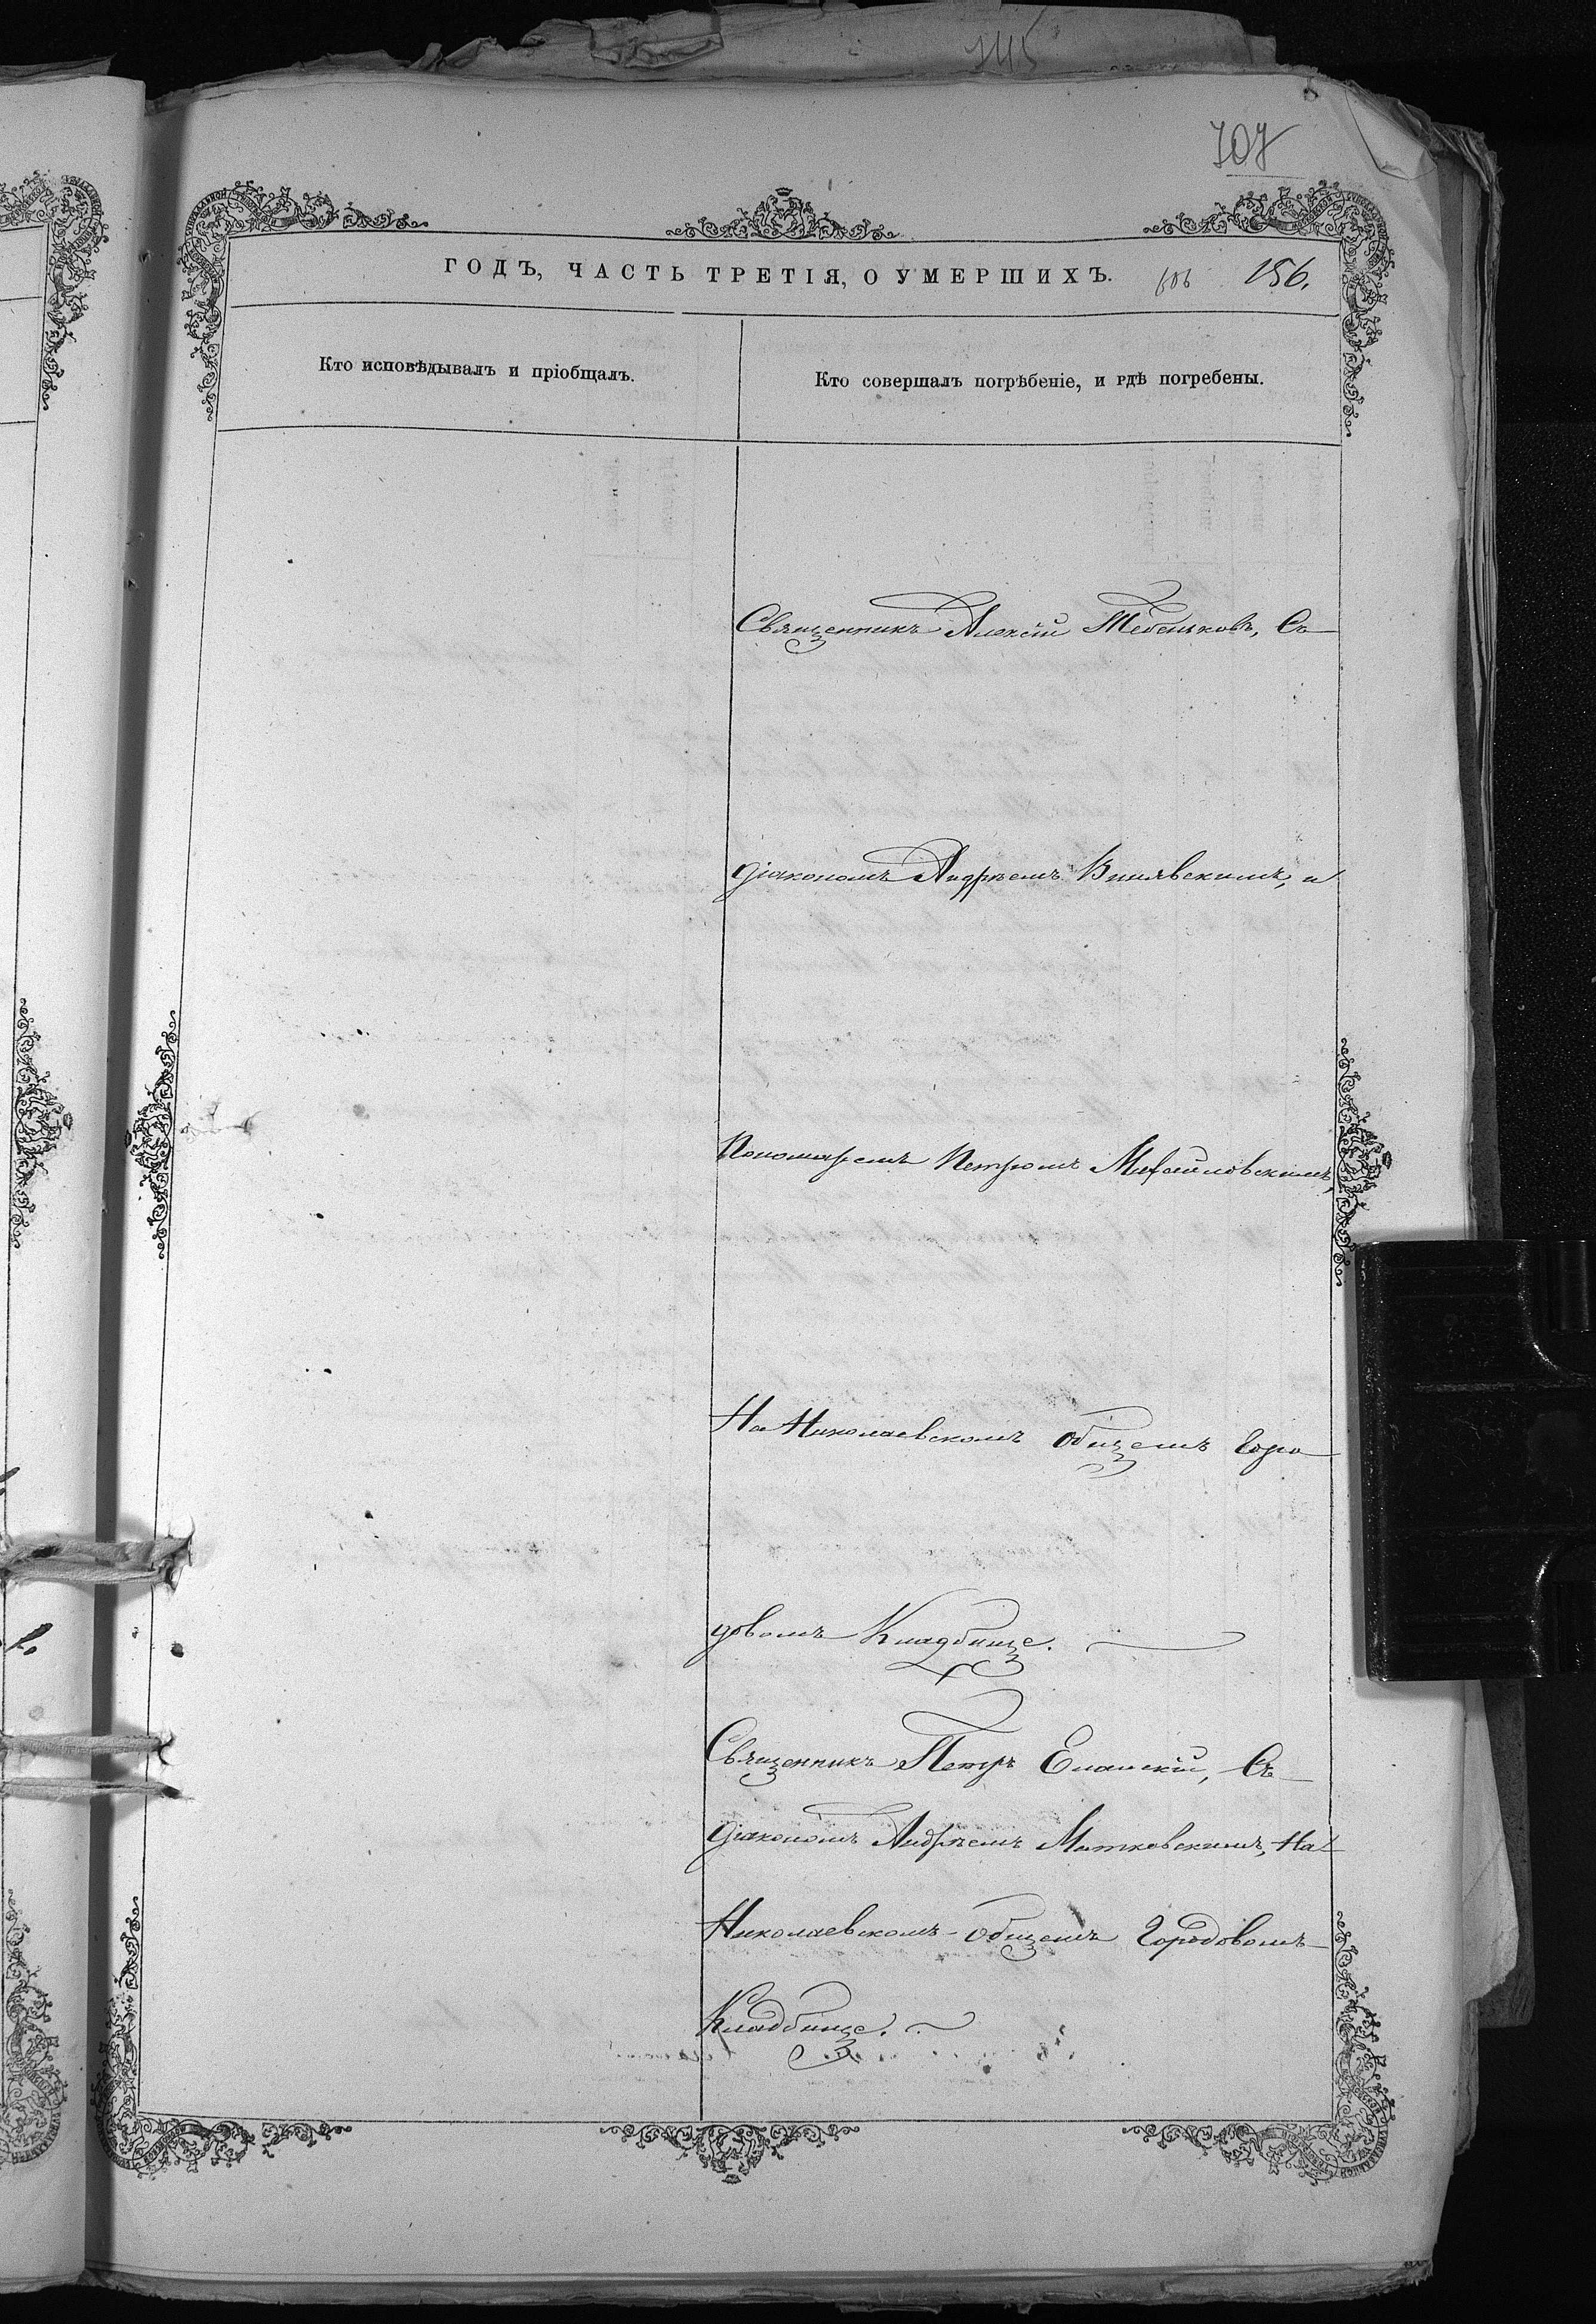 145
707
ГОДЪ, ЧАСТЬ ТРЕТІЯ, О УМЕРШИХЪ. 606 156.
Кто исповѣдывалъ и пріобщалъ.
Кто совершалъ погрѣбеніе, и гдѣ погребены.
Священникъ Алексій Тебеньковъ, Съ
діакономъ Андреемъ и
Пономаремъ Петромъ Михайловскимъ,
На Николаевскомъ Общемъ Горо
довомъ Кладбище.
Священникъ Петръ Еланскій, Съ
діакономъ Андреемъ Матковскимъ, На
Николаевскомъ-Общемъ Городовомъ
Кладбище.